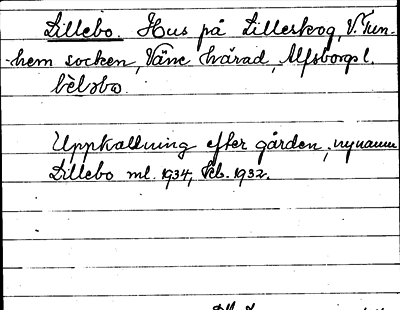 Lillebo. Hus på Lilleskog, V. Tun-
-hem socken, Väne härad, Älfsborgs l.
Uppkallning efter gården, nynamn
Lillebo ml. 1934, Feb. 1932.